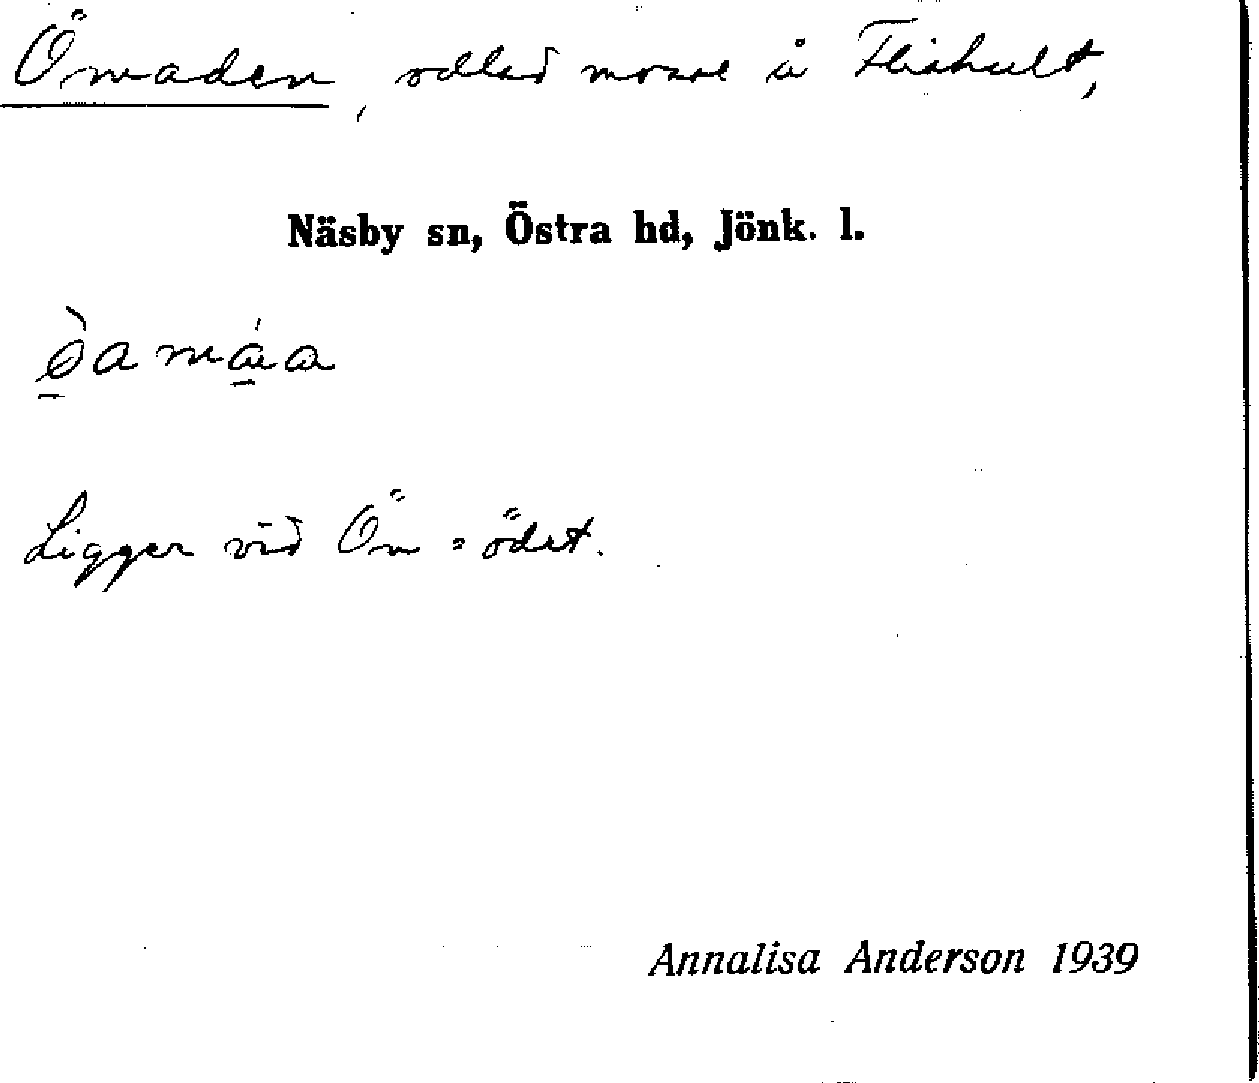 Ömaden, odlad mosse å Flishult,
Näsby sn, Östra hd, Jönk. l.
Ligger vid Ön = ödet.
Annalisa Anderson 1939